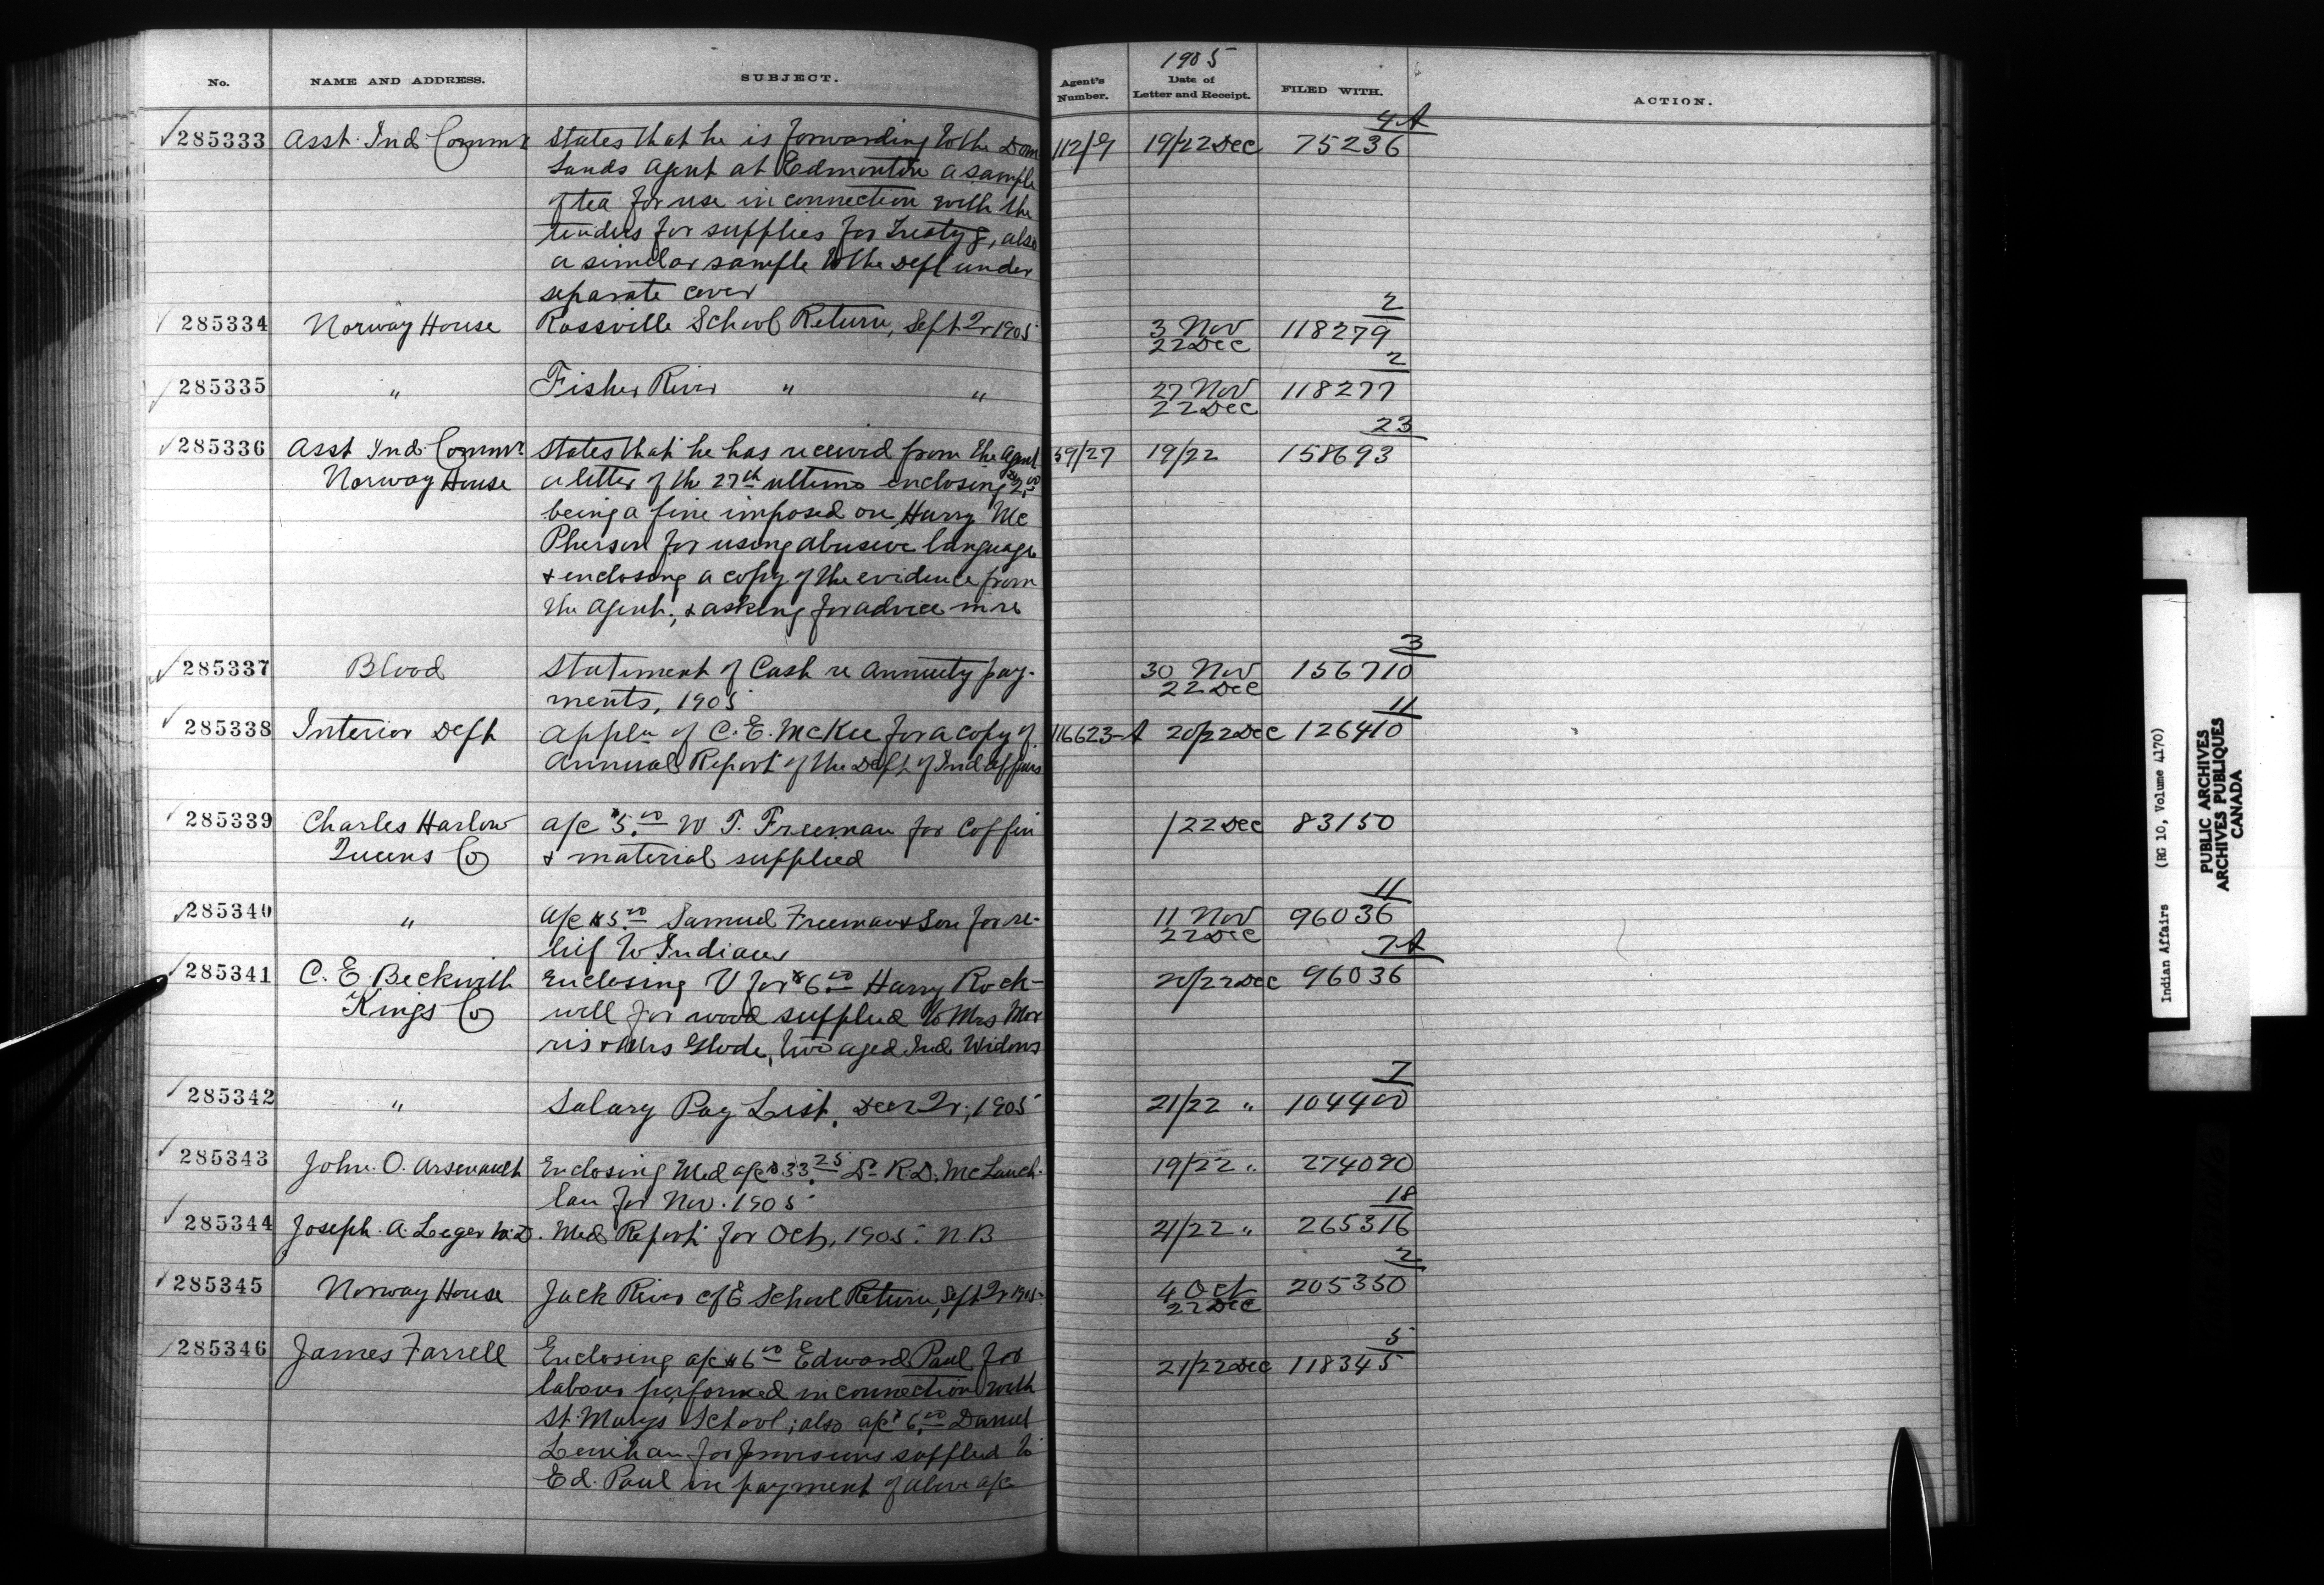 1905
No. NAME AND ADDRESS. SUBJECT. Agent's Number. Date of Letter and Receipt. FILED WITH. ACTION.
4A
285333 Asst. Ind. Commr States that he is forwarding to the Dom 112/9 19/22 Dec 75236
Lands Agent at Edmonton a sample
of tea for use in connection with the
tenders for supplies for Treaty 8, also
a similar sample to the Dept under
separate cover
2
285334 Norway House Rossville School Return, Sept Qr 1905 3 Nov 118279
22 Dec
2
285335 " Fisher River " " 27 Nov 118277
22 Dec
23
285336 Asst Ind. Commr States that he has received from the Agent 59/27 19/22 158693
Norway House a letter of the 27th ultimo enclosing $2.00
being a fine imposed on Harry Mc
Pherson for using abusive language
& enclosing a copy of the evidence from
the Agent, & asking for advice in re
3
285337 Blood Statement of Cash re Annuity pay- 30 Nov 156710
ments, 1905 22 Dec
11
285338 Interior Dept Appln of C. E. McKee for a copy of 116623-A 20/22 Dec 126410
Annual Report of the Dept of Ind. Affairs
285339 Charles Harlow a/c $5.00 W. T. Freeman for Coffin /22 Dec 83150
Queens Co & material supplied
11
285340 " a/c $5.00 Samuel Freeman & Son for re- 11 Nov 96036
lief to Indians 22 Dec
7A
285341 C. E. Beckwith Enclosing V for $6.00 Harry Rock- 20/22 Dec 96036
Kings Co well for wood supplied to Mrs Mor
ris & Mrs Glode, two aged Ind. Widows
7
285342 " Salary Pay List, Decr Qr, 1905 21/22 " 104400
285343 John. O. Arsenault Enclosing Med a/c $33.25 Dr R. D. McLauch- 19/22 " 274090
lan for Nov. 1905
18
285344 Joseph. A. Leger M.D. Med Report for Oct, 1905. N.B 21/22 " 265316
2
285345 Norway House Jack River C of E School Return, Sept Qr 1905 4 Oct 205350
22 Dec
5
285346 James Farrell Enclosing a/c $6.00 Edward Paul for 21/22 Dec 118345
labour performed in connection with
St. Marys School; also a/c $6.00 Daniel
Lenihan for provisions supplied to
Ed. Paul in payment of above a/c
Indian Affairs (RG 10, Volume 4170)
PUBLIC ARCHIVES
ARCHIVES PUBLIQUES
CANADA